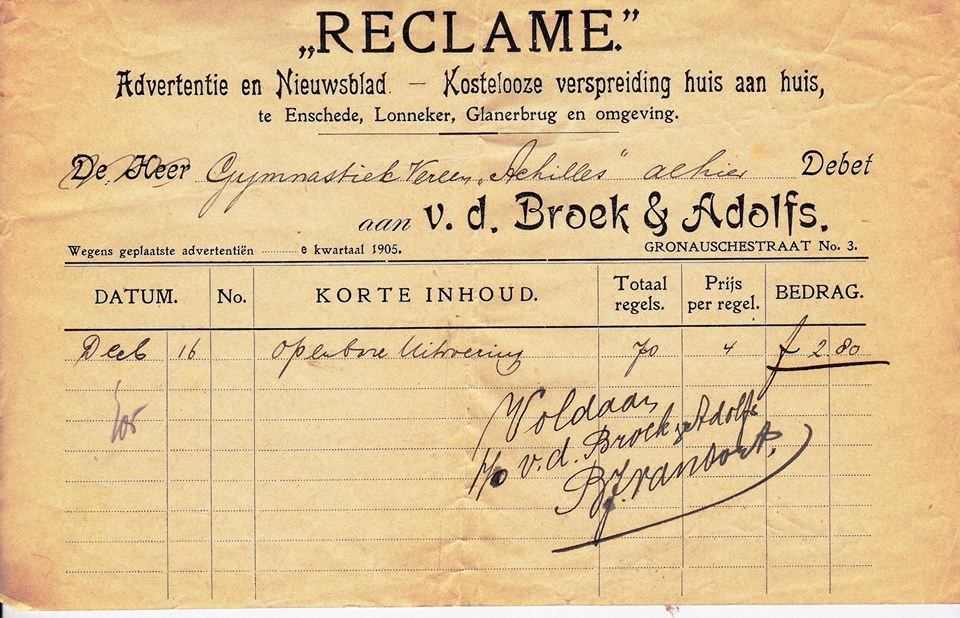 „RECLAME.”
Advertentie en Nieuwsblad. — Kostelooze verspreiding huis aan huis,
te Enschede, Lonneker, Glanerbrug en omgeving.
De Heer Gymnastiek Vereen „Achilles” alhier Debet
aan v. d. Broek & Adolfs.
Wegens geplaatste advertentiën e kwartaal 1905. GRONAUSCHESTRAAT No. 3.
DATUM. No. KORTE INHOUD. Totaal regels. Prijs per regel. BEDRAG.
Decb 16 Openbare Uitvoering 70 4 f 2 80
Voldaan
p/o v.d. Broek & Adolfs